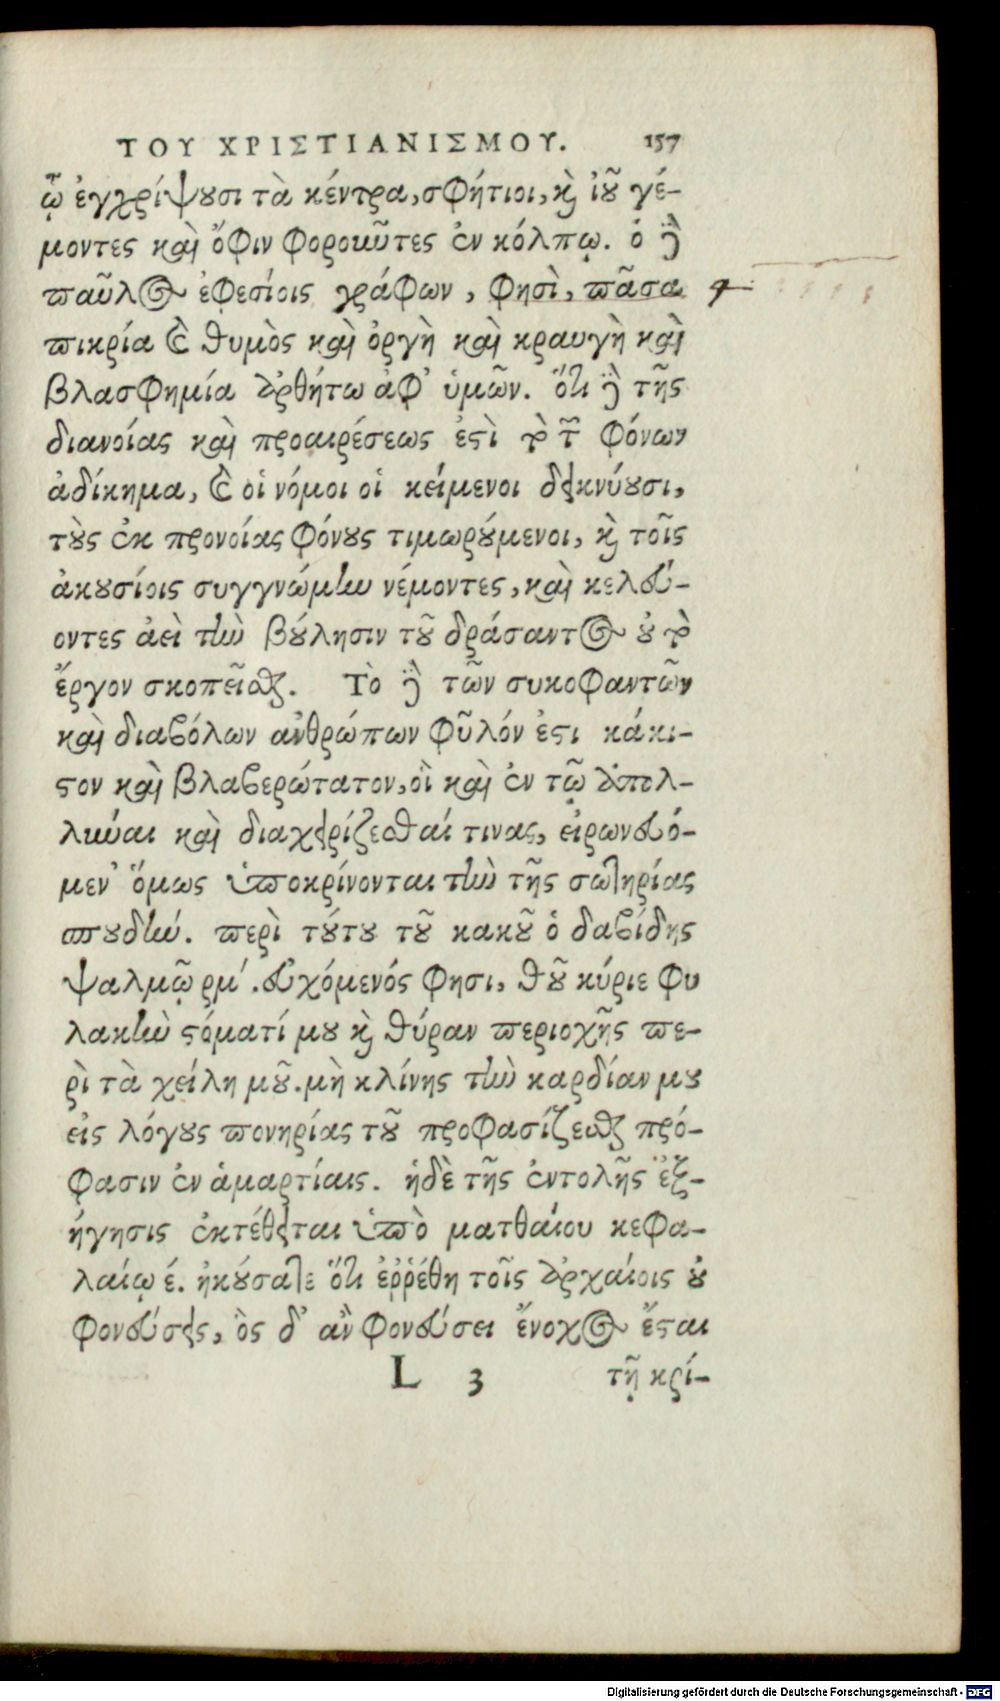 ΤΟΥ ΧΡΙΣΤΙΑΝΙΣΜΟΥ. 157
ᾧ ἐγχρίψουσι τὰ κέντρα, σφήτιοι, καὶ ἰοῦ γέ-
μοντες καὶ ὄφιν φοροιῦτες ἐν κόλπῳ. ὁ δὲ
παῦλος ἐφεσίοις γράφων, φησὶ, πᾶσα
πικρία καὶ θυμὸς καὶ ὀργὴ καὶ κραυγὴ καὶ
βλασφημία ἀρθήτω ἀφ' ὑμῶν. ὅτι δὲ τῆς
διανοίας καὶ προαιρέσεως ἐστὶ τὸ τῶν φόνων
ἀδίκημα, καὶ οἱ νόμοι οἱ κείμενοι δεικνύουσι,
τοὺς ἐκ προνοίας φόνους τιμωρούμενοι, καὶ τοῖς
ἀκουσίοις συγγνώμην νέμοντες, καὶ κελεύ-
οντες ἀεὶ τὴν βούλησιν τοῦ δράσαντος οὐ τὸ
ἔργον σκοπεῖσθαι. Τὸ δὲ τῶν συκοφαντῶν
καὶ διαβόλων ἀνθρώπων φῦλόν ἐστι κάκι-
στον καὶ βλαβερώτατον, οἳ καὶ ἐν τῷ ἀπολ-
λύναι καὶ διαχειρίζεσθαί τινας, εἰρωνευό-
μεν' ὅμως ὑποκρίνονται τὴν τῆς σωτηρίας
σπουδήν. περὶ τούτου τοῦ κακοῦ ὁ δαβίδης
ψαλμῷ ρμ'. εὐχόμενός φησι, θοῦ κύριε φυ
λακὴν στόματί μου καὶ θύραν περιοχῆς πε-
ρὶ τὰ χείλη μοῦ. μὴ κλίνῃς τὴν καρδίαν μου
εἰς λόγους πονηρίας τοῦ προφασίζεσθαι πρό-
φασιν ἐν ἁμαρτίαις. ἡδὲ τῆς ἐντολῆς ἐξ-
ήγησις ἐκτέθειται ὑπὸ ματθαίου κεφα-
λαίῳ έ. ἠκούσατε ὅτι ἐῤῥέθη τοῖς ἀρχαίοις οὐ
φονεύσεις, ὃς δ' ἂν φονεύσει ἔνοχος ἔσται
L 3 τῇ κρί-
Digitalisierung gefördert durch die Deutsche Forschungsgemeinschaft - DFG